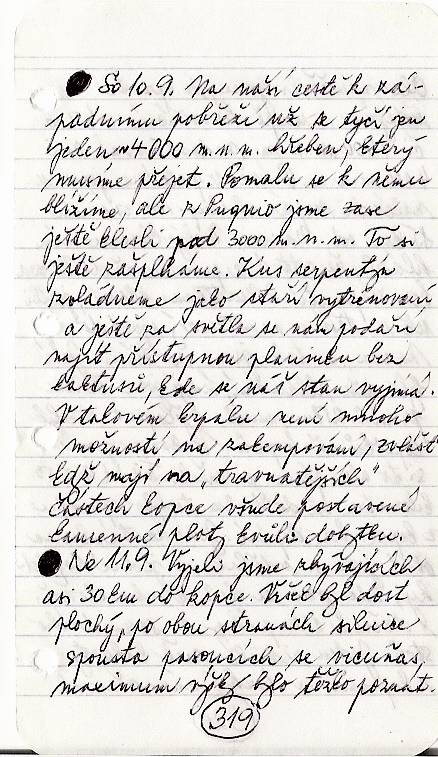 So 10.9. Na naší cestě k zá-
padnímu pobřeží už se tyčí jen
jeden ~4000 m.n.m. hřeben, který
musíme přejet. Pomalu se k němu
blížíme, ale z Puquio jsme zase
ještě klesli pod 3000 m.n.m. To si
ještě zašplháme. Kus serpentýn
zvládneme jako staří vytrénovaní
a ještě za světla se nám podaří
najít přístupnou planinku bez
kaktusů, kde se náš stan vyjímá.
V takovém krpálu není mnoho
možností na zakempování, zvlášť
když mají na „travnatějších"
částech kopce všude postavené
kamenné ploty kvůli dobytku.
Ne 11.9. Vyjeli jsme zbývajících
asi 30 km do kopce. Vršek byl dost
plochý, po obou stranách silnice
spousta pasoucích se vicuňas,
maximum výšky bylo těžko poznat.
319